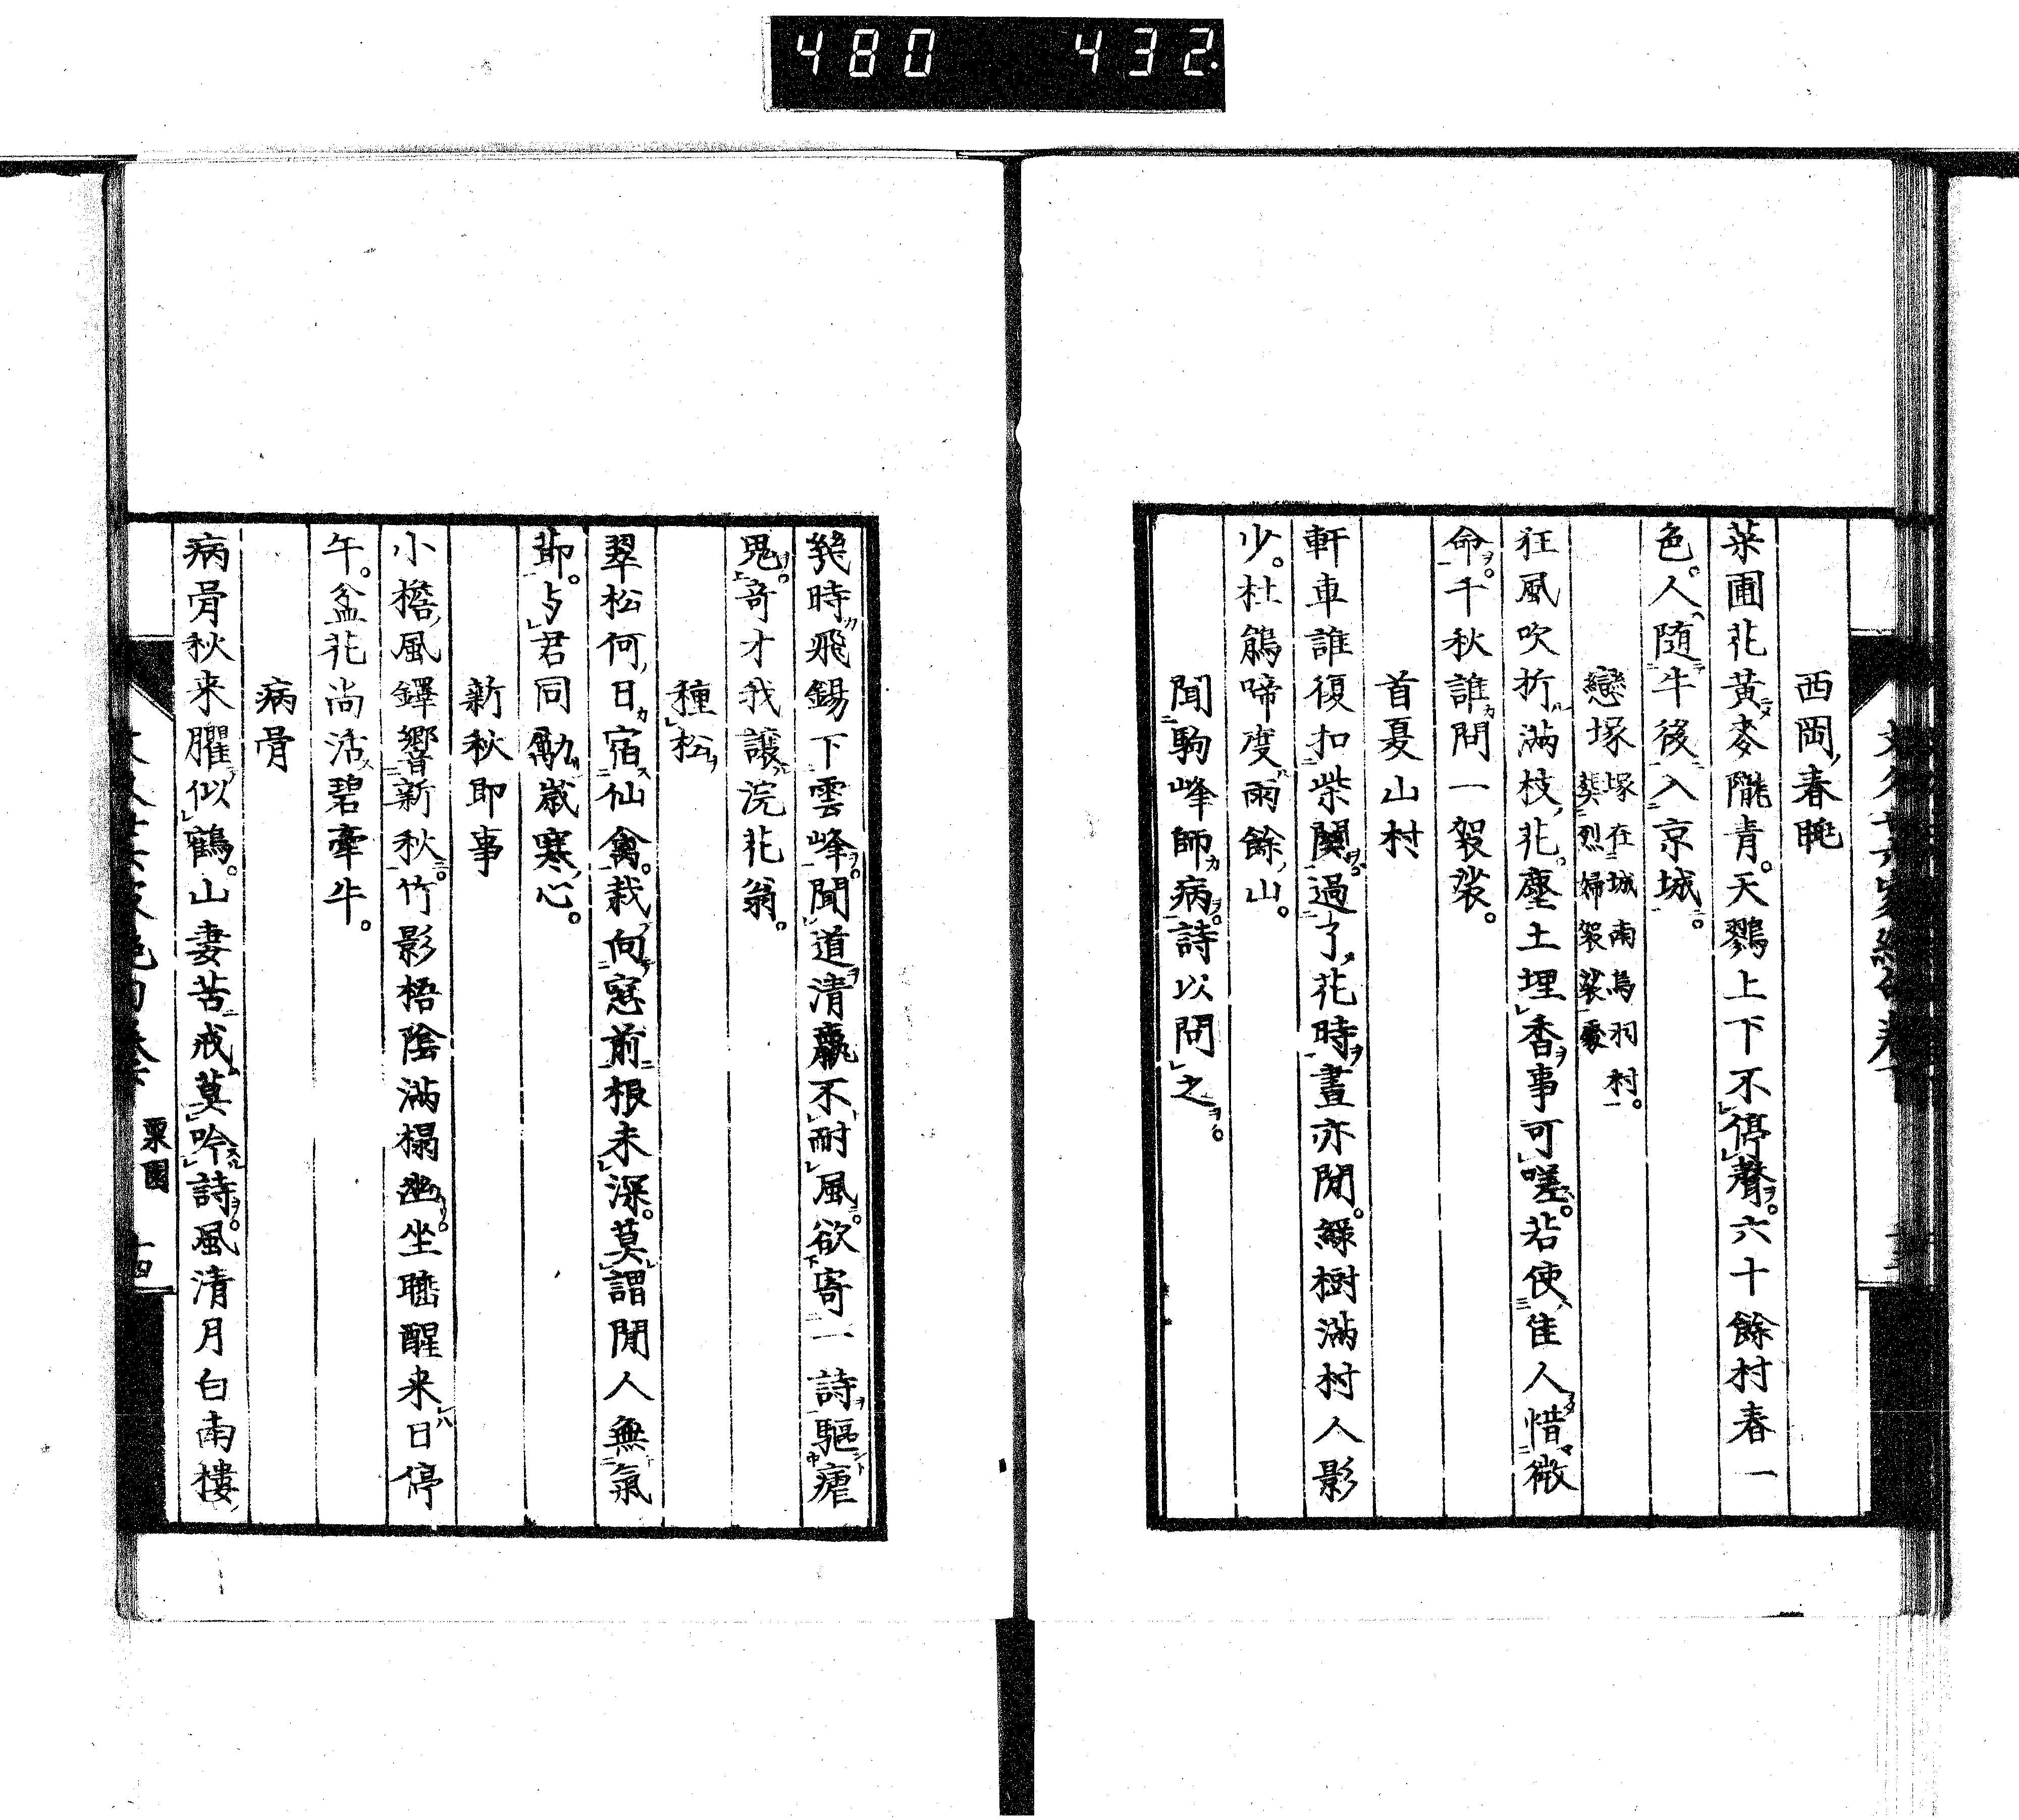 480 432.
西岡春眺
菜圃花黃麥隴青。天鷚上下不停聲。六十餘村春一
色。人隨牛後入京城。
戀塚 塚在城南鳥羽村。葬烈婦袈裟處
狂風吹折滿枝花。塵土埋香事可嗟。若使佳人惜微
命。千秋誰問一袈裟。
首夏山村
軒車誰復扣柴関。過了花時晝亦閒。綠樹滿村人影
少。杜鵑啼度雨餘山。
聞駒峰師病。詩以問之。
幾時飛錫下雲峰。聞道清羸不耐風。欲寄一詩驅瘧
鬼。奇才我讓浣花翁。
種松
翠松何日宿仙禽。栽向窓前根未深。莫謂閒人無氣
節。与君同勵歲寒心。
新秋即事
小檐風鐸響新秋。竹影梧陰滿榻幽。坐睡醒来日停
午。盆花尚活碧牽牛。
病骨
病骨秋来臞似鶴。山妻苦戒莫吟詩。風清月白南樓
栗園